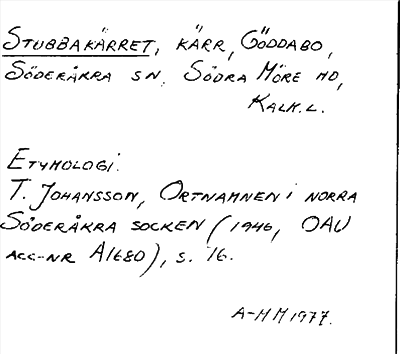 STUBBAKÄRRET, KÄRR, GÖDDABO,
SÖDERÅKRA SN, SÖDRA MÖRE HD,
KALM.L.
ETYMOLOGI:
T. JOHANSSON, ORTNAMNEN I NORRA
SÖDERÅKRA SOCKEN (1946, OAU
ACC-NR A1680), S. 76.
A-MM 1977.